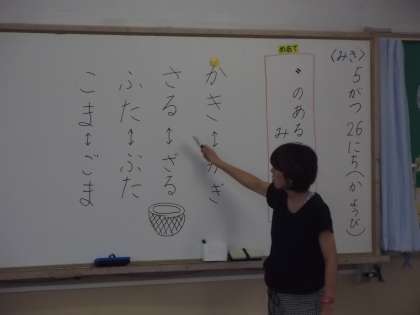 (みき) 5がつ26にち(かようび)
めあて
〃のある
み
かき↕かぎ
さる↕ざる
ふた↕ぶた
こま↕ごま